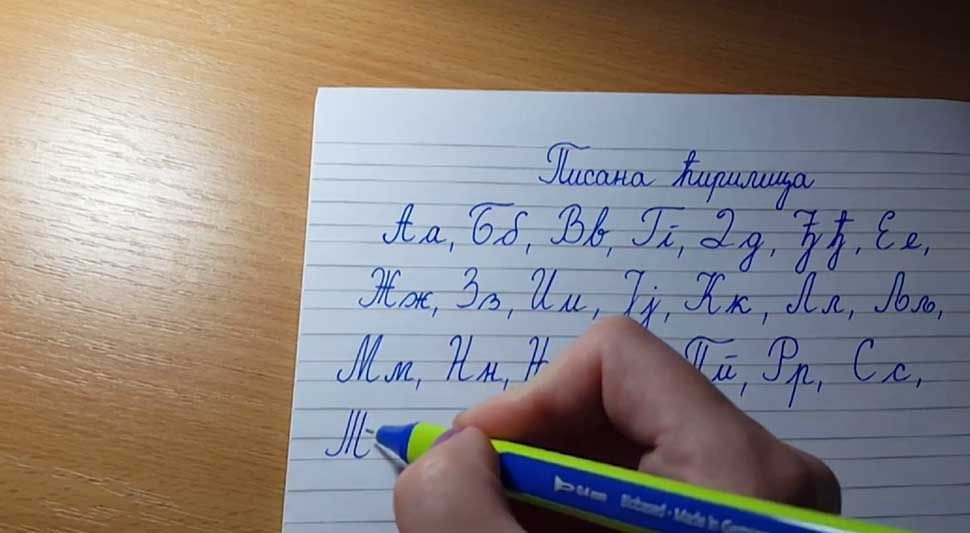 Писана ћирилица
Аа, Бб, Вв, Гг, Дд, Ђђ, Ее,
Жж, Зз, Ии, Јј, Кк, Лл, Љљ,
Мм, Нн, Пп, Рр, Сс,
Т
0.4 mm